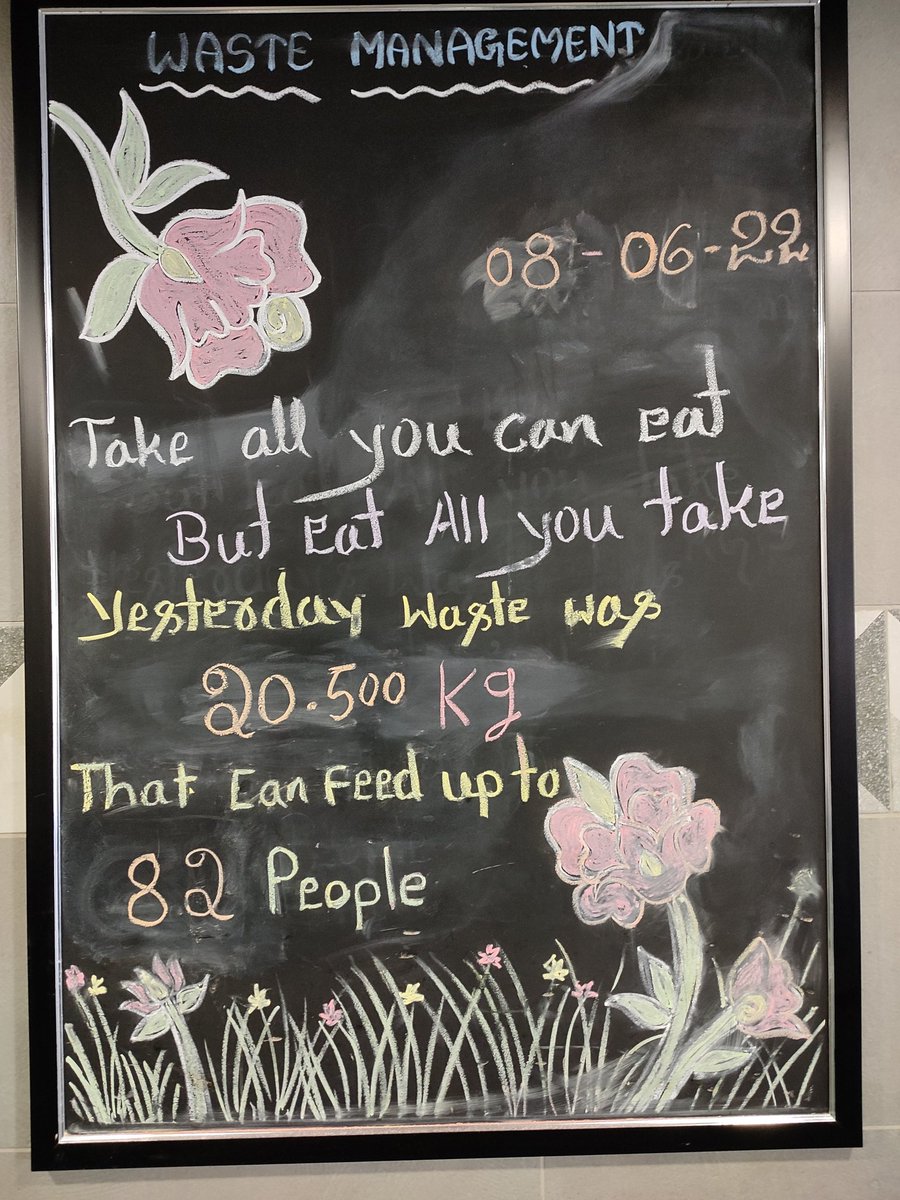 WASTE MANAGEMENT
08-06-22
Take all you can eat
But Eat All you take
Yesterday Waste was
20.500 Kg
That Can Feed up to
82 People